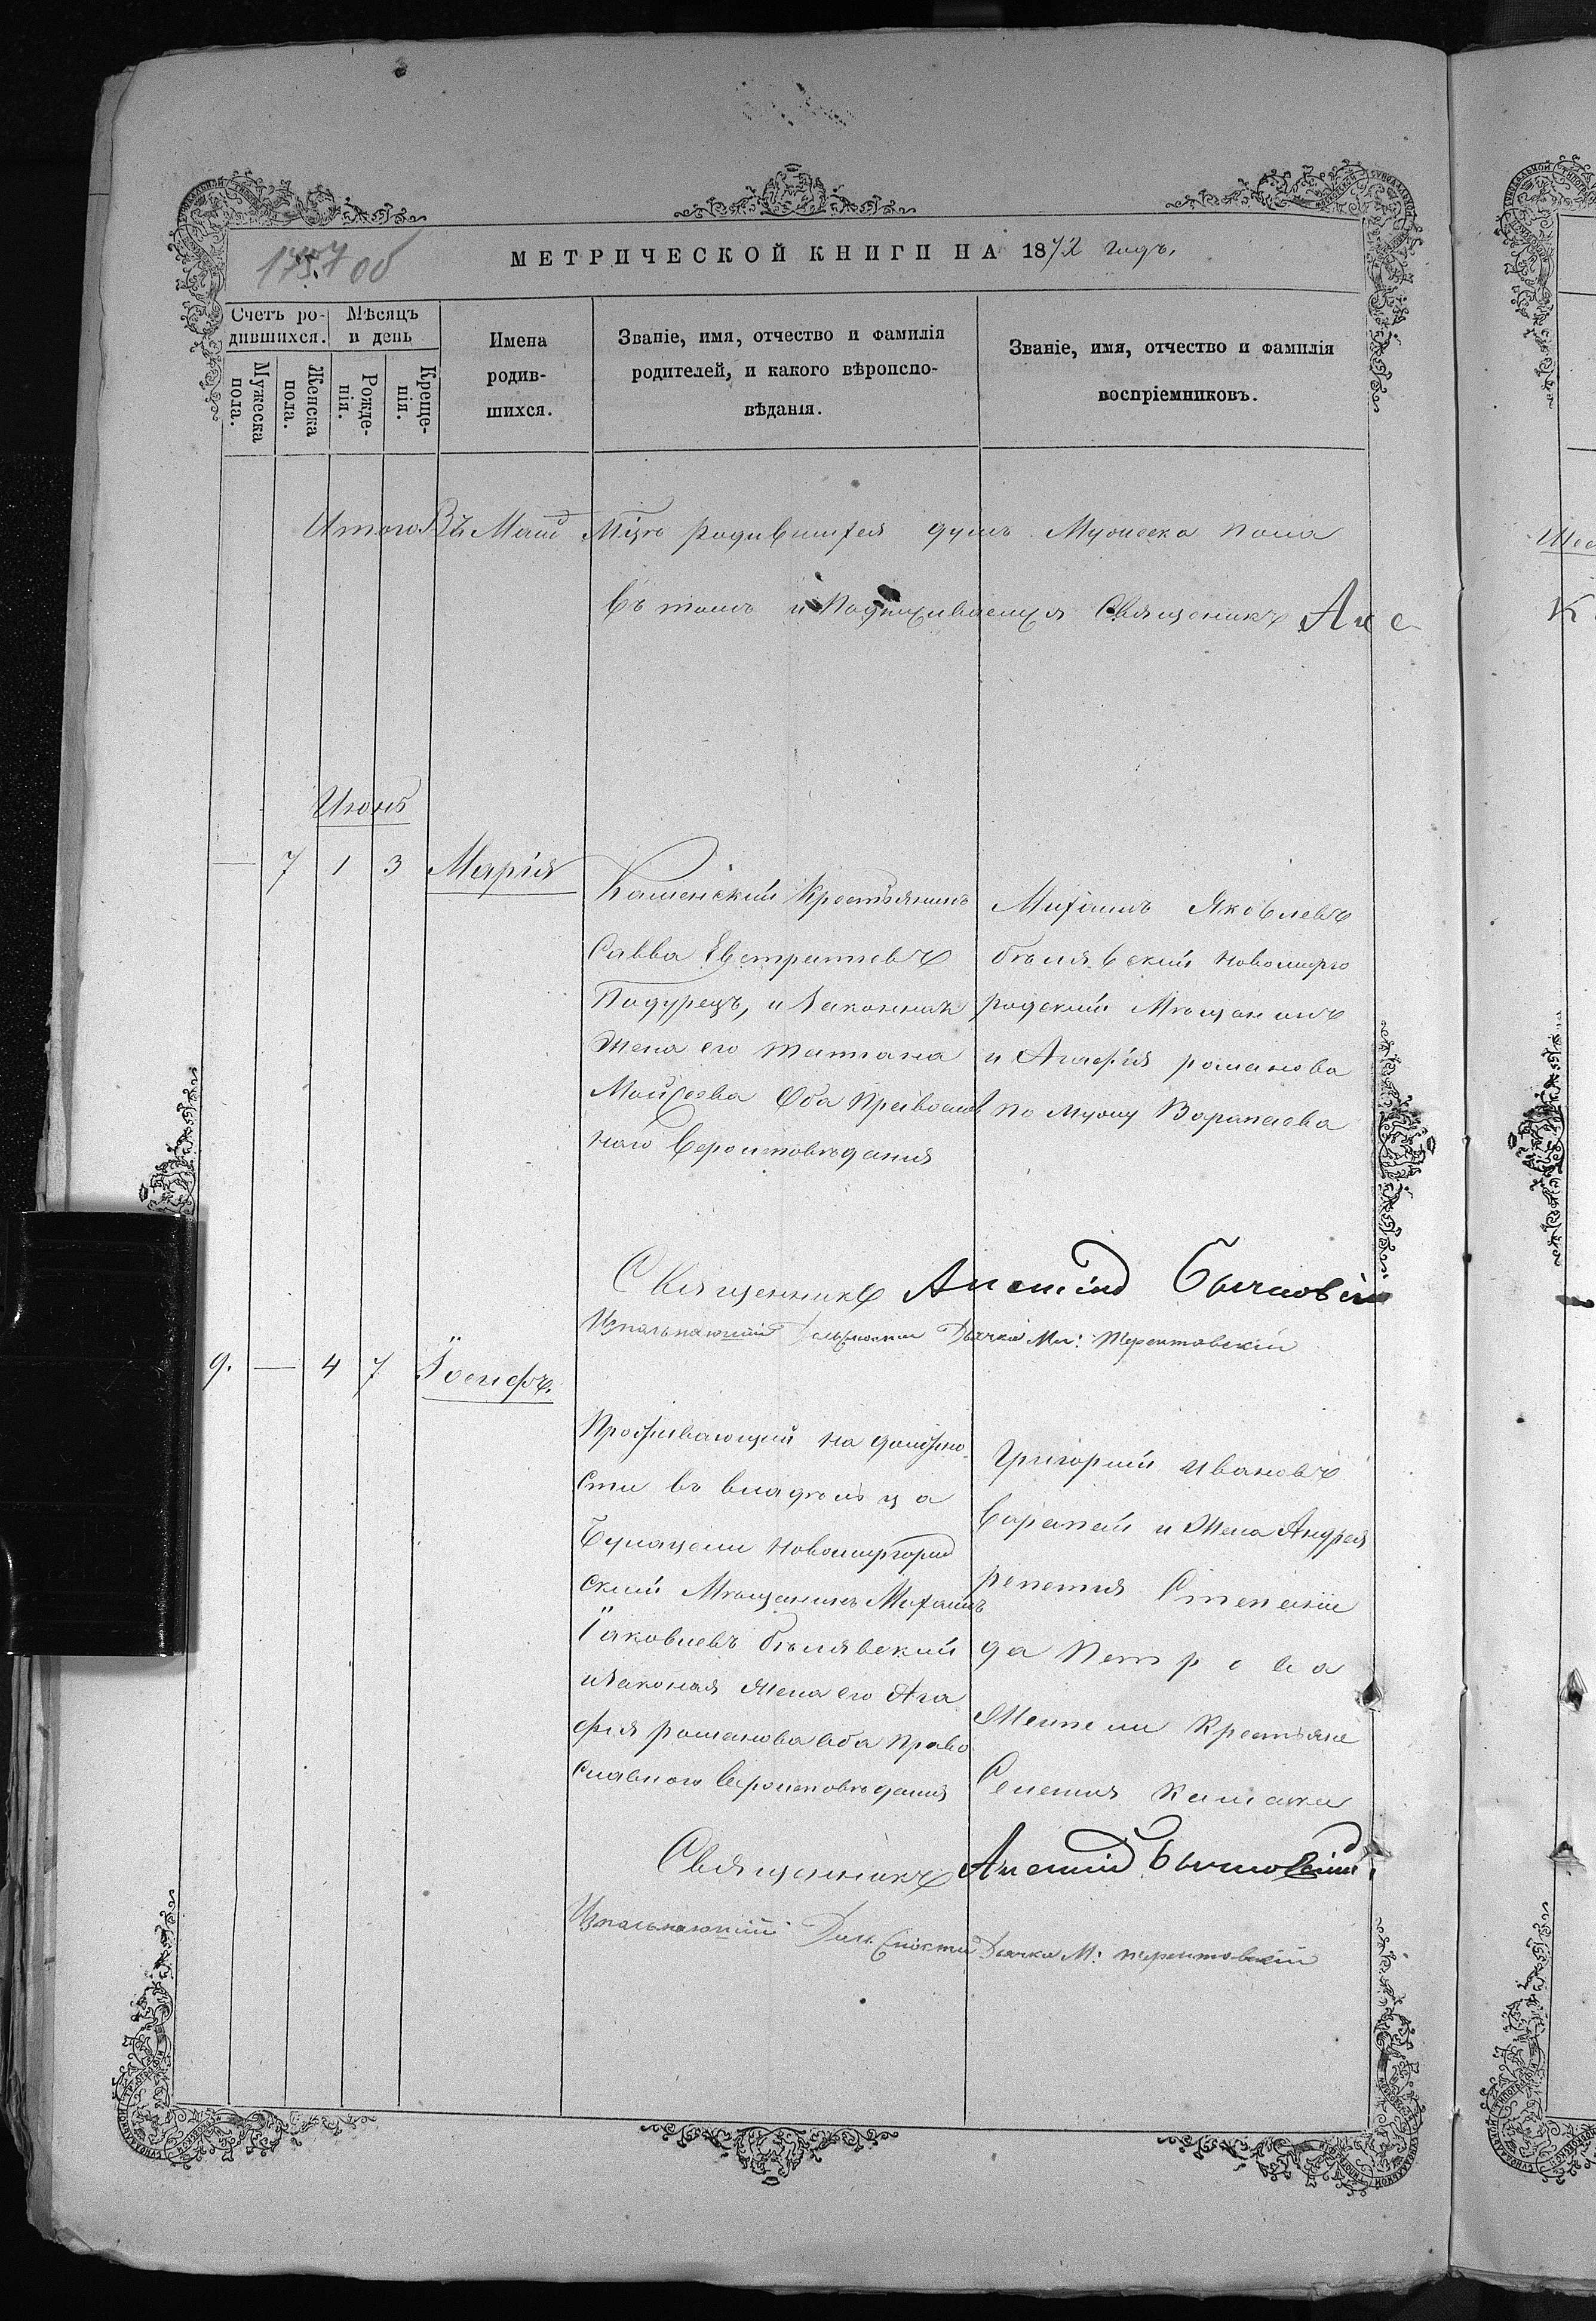 1757 об
МЕТРИЧЕСКОЙ КНИГИ НА 1872 годъ,
Счетъ ро-
дившихся.
Мѣсяцъ
и день
Мужеска
пола.
Женска
пола.
Рожде-
нія.
Креще-
нія.
Имена
родив-
шихся.
Званіе, имя, отчество и фамилія
родителей, и какого вѣроиспо-
вѣданія.
Званіе, имя, отчество и фамилія
воспріемниковъ.
Итого Въ Маіѣ Мцѣ родившихся душъ Мужеска пола
въ томъ и подписываемся Священикъ Але
Июнь
— 7 1 3 Марія
Крестьянинъ
Савва Евстратіевъ
Падурецъ, и Законная
Жена его Татіана
Мойсеева Оба Православ
наго Вероисповѣдания
Михаилъ Яковлевъ
бѣлявский новомирго
родский Мѣщанинъ
и Агафія романова
по мужу Варапаева
Священникъ
Исправляющій Должность Дьячка Терентовскій
9. — 4 7 Іосифъ.
Проживающій на должно
сти въ владѣльца
новомиргород
ский Мѣщанинъ Михаилъ
Іаковлевъ бѣлявский
и Законая Жена его Ага
фия романова Оба Право
славного Вероисповѣдания
Григорий Ивановъ
Варапай и Жена Андрея
Степани
да Петрова
Жители Крестьяне
Селения
Священникъ
Исправляющій Должность Дьячка М: Терентовскій